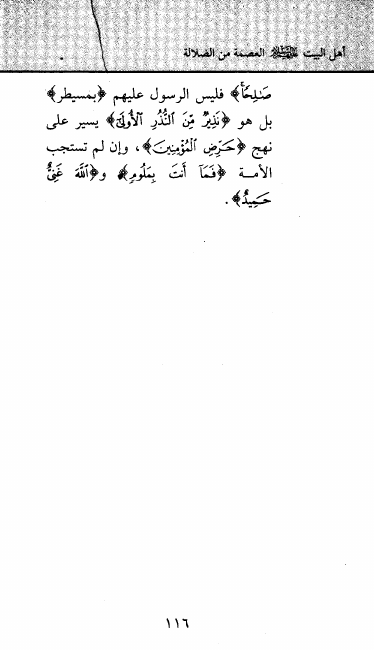 أهل البيت عليهم السلام العصمة من الضلالة
صَـٰلِحًا﴾ فليس الرسول عليهم ﴿بمسيطر﴾
بل هو ﴿نَذِيرٌ مِّنَ ٱلنُّذُرِ ٱلْأُولَىٰٓ﴾ يسير على
نهج ﴿حَرِّضِ ٱلْمُؤْمِنِينَ﴾، وإن لم تستجب
الأمـة ﴿فَمَآ أَنتَ بِمَلُومٍ﴾ و﴿ٱللَّهَ غَنِيٌّ
حَمِيدٌ﴾.
١١٦